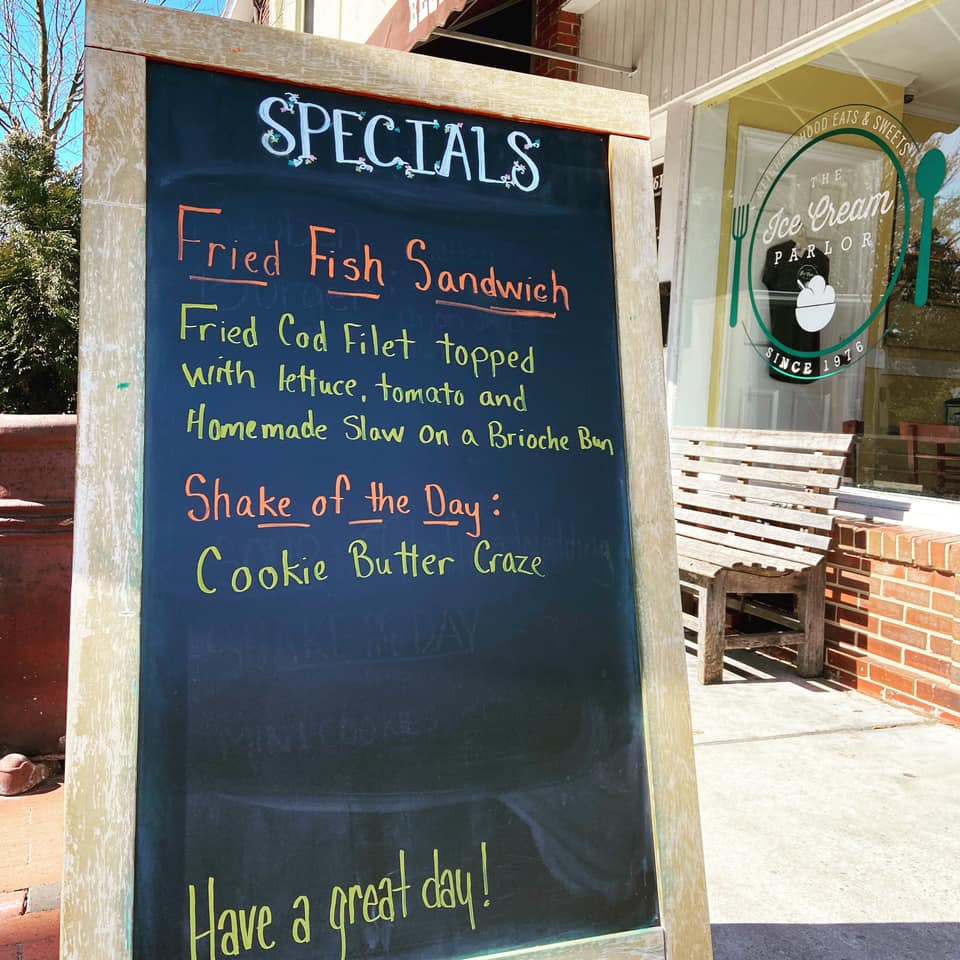 SPECIALS
Fried Fish Sandwich
Fried Cod Filet topped
with lettuce, tomato and
Homemade Slaw on a Brioche Bun
Shake of the Day:
Cookie Butter Craze
Have a great day!
NEIGHBORHOOD EATS & SWEETS
THE
Ice Cream
PARLOR
SINCE 1976